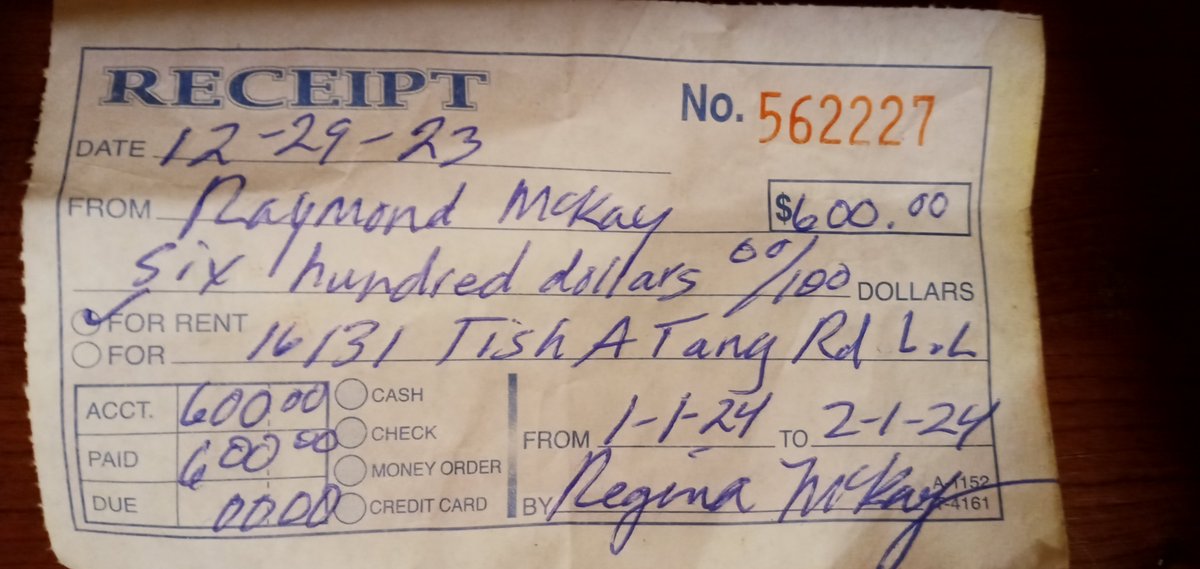 RECEIPT No. 562227
DATE 12-29-23
FROM Raymond McKay $600.00
Six hundred dollars 00/100 DOLLARS
FOR RENT 16131 Tish A Tang Rd L.L
FOR
ACCT. 600.00 CASH
PAID 600.00 CHECK
DUE 00.00 MONEY ORDER
CREDIT CARD
FROM 1-1-24 TO 2-1-24
BY Regina McKay
A-1152
-4161